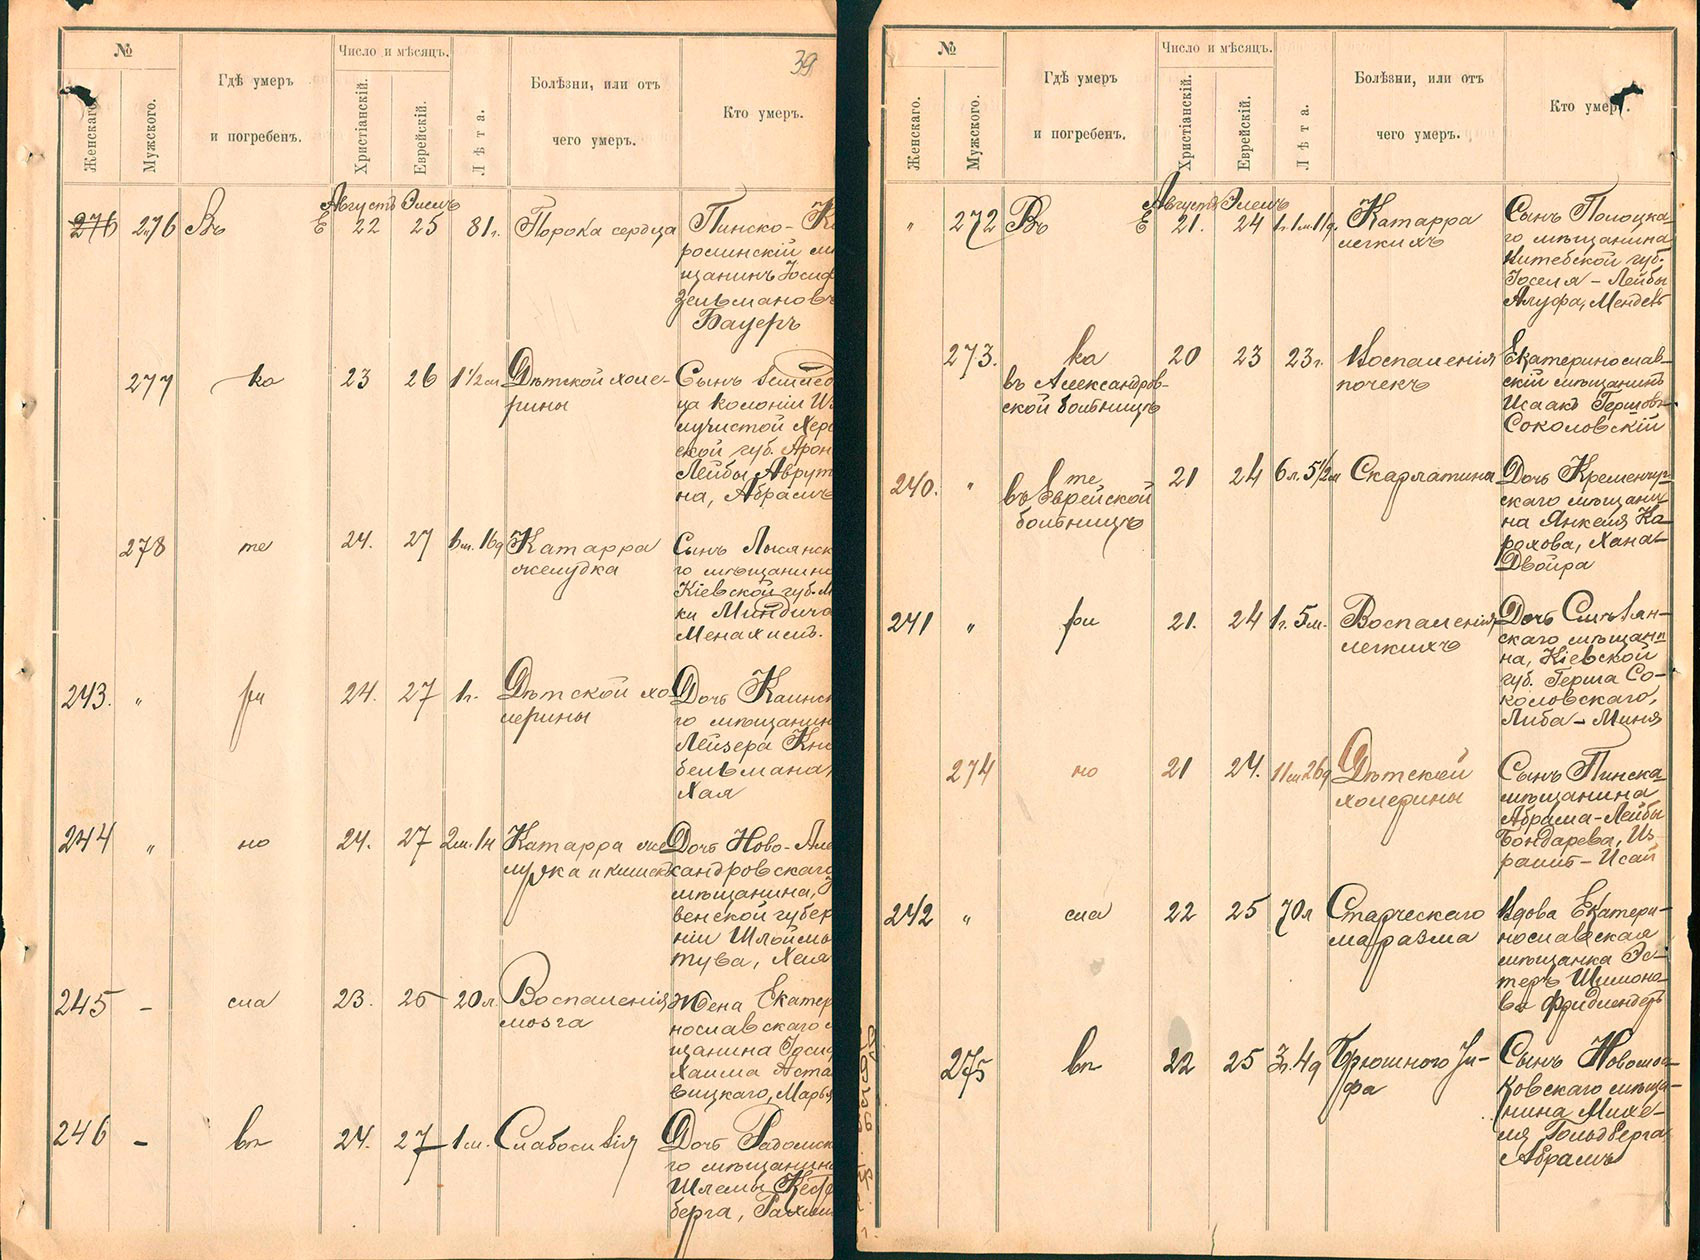 39
№
Число и мѣсяцъ.
Женскаго.
Мужского.
Гдѣ умеръ
и погребенъ.
Христіанскій.
Еврейскій.
Лѣта.
Болѣзни, или отъ
чего умеръ.
Кто умеръ.
Августъ Элелъ
276 276 Въ Е 22 25 81 г. Порока сердца Пинско-
щанинъ Іосиф
Зельмановъ
Бауеръ
277 ка 23 26 1 1/2 м Дѣтской холе-
рины
Сынъ
ца колоніи
лучистой Хер
ской губ. Арон
Лейбы Аврут
на, Абрамъ
278 те 24. 27 16д Катарра
желудка
Сынъ
го мѣщанина
Кіевской губ.
ки Миндича
Менахимъ.
243. „ ри 24. 27 1 г. Дѣтской хо-
лерины
Дочь Каинск
го мѣщанин
Лейзера
бельмана,
Хая
244 „ но 24. 27 2 м. Катарра же
лудка и кишекъ
Дочь Ново-Але
ксандровскаго
мѣщанина,
венской губер
ніи Шлоймы
тува, Хая
245 – сла 23. 26 20 л. Воспаленія
мозга
Жена Екатер
нославскаго
щанина Іосиф
Хаима Аста
вицкаго, Марья
246 – вп 24. 27 1 м. Слабосилія Дочь Радомск
го мѣщанина
Шлемы
берга,
№
Число и мѣсяцъ.
Женскаго.
Мужского.
Гдѣ умеръ
и погребенъ.
Христіанскій.
Еврейскій.
Лѣта.
Болѣзни, или отъ
чего умеръ.
Кто умеръ.
Августъ Элелъ
„ 272 Въ Е 21. 24 1 г. 1 м. 11 д. Катарра
легкихъ
Сынъ Полоцка-
го мѣщанина
Витебской губ.
Іоселя – Лейбы
Алуфа, Мендель
273. ка 20 23 23 г. Воспаленія
въ Александров-
ской больницѣ
почекъ
Екатеринослав-
скій мѣщанинъ
Исаакъ Гершовъ
Соколовскій
240. „ те 21 24 6 л. 5 1/2 м Скарлатина
въ Еврейской
больницѣ
Дочь Кременчуг-
скаго мѣщани-
на Янкеля Ка-
рохова, Хана-
Двойра
241 „ ри 21. 24 1 г. 5 м. Воспаленія
легкихъ
Дочь Смѣлян-
скаго мѣщани-
на, Кіевской
губ. Герша Со-
коловскаго,
Либа – Миня
274 но 21 24. 11 м 26 д Дѣтской
холерины
Сынъ Пинска
мѣщанина
Абрама-Лейбы
Бондарева, Из-
раиль – Исай
242 „ сла 22 25 70 л Старческаго
маразма
Вдова Екатери-
нославская
мѣщанка Эс-
теръ Шимоно-
ва Фридлендеръ
275 вп 22 25 3 г. 4 д Брюшного ти-
фа
Сынъ Новомос-
ковскаго мѣща-
нина Михе-
ля Гольдберга
Абрамъ